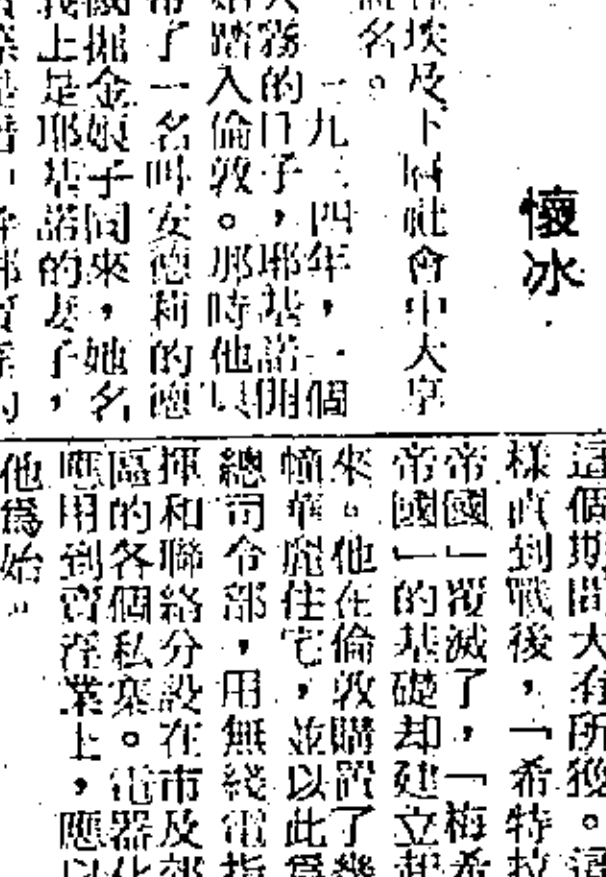 懷冰
埃及下層社會中大享
名。
一九三四年，一個
務的日子，耶基諾開
踏入倫敦。那時他只
帶了一名叫安德莉的德
國掘金娘子同來，她名
義上是耶基諾的妻子，
這個期間大有所獲。這
樣直到戰後，「希特拉
帝國」覆滅了，「梅希
帝國」的基礎却建立起
來。他在倫敦購置了幾
幢華麗住宅，並以此爲
總司令部，用無綫電指
揮和聯絡分設在市及郊
區的各個私寨。電器化
應用到賣淫業上，應以
他爲始。